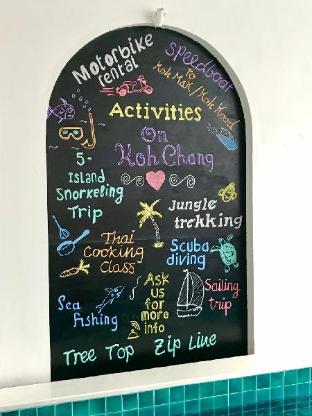 Motorbike
rental
Speedboat
to
Koh Mak/Koh Kood
Activities
On
Koh Chang
5-
Island
Snorkeling
Trip
Jungle
trekking
Thai
Cooking
Class
Scuba
diving
Sea
Fishing
Ask
us
for
more
info
Sailing
trip
Tree Top Zip Line